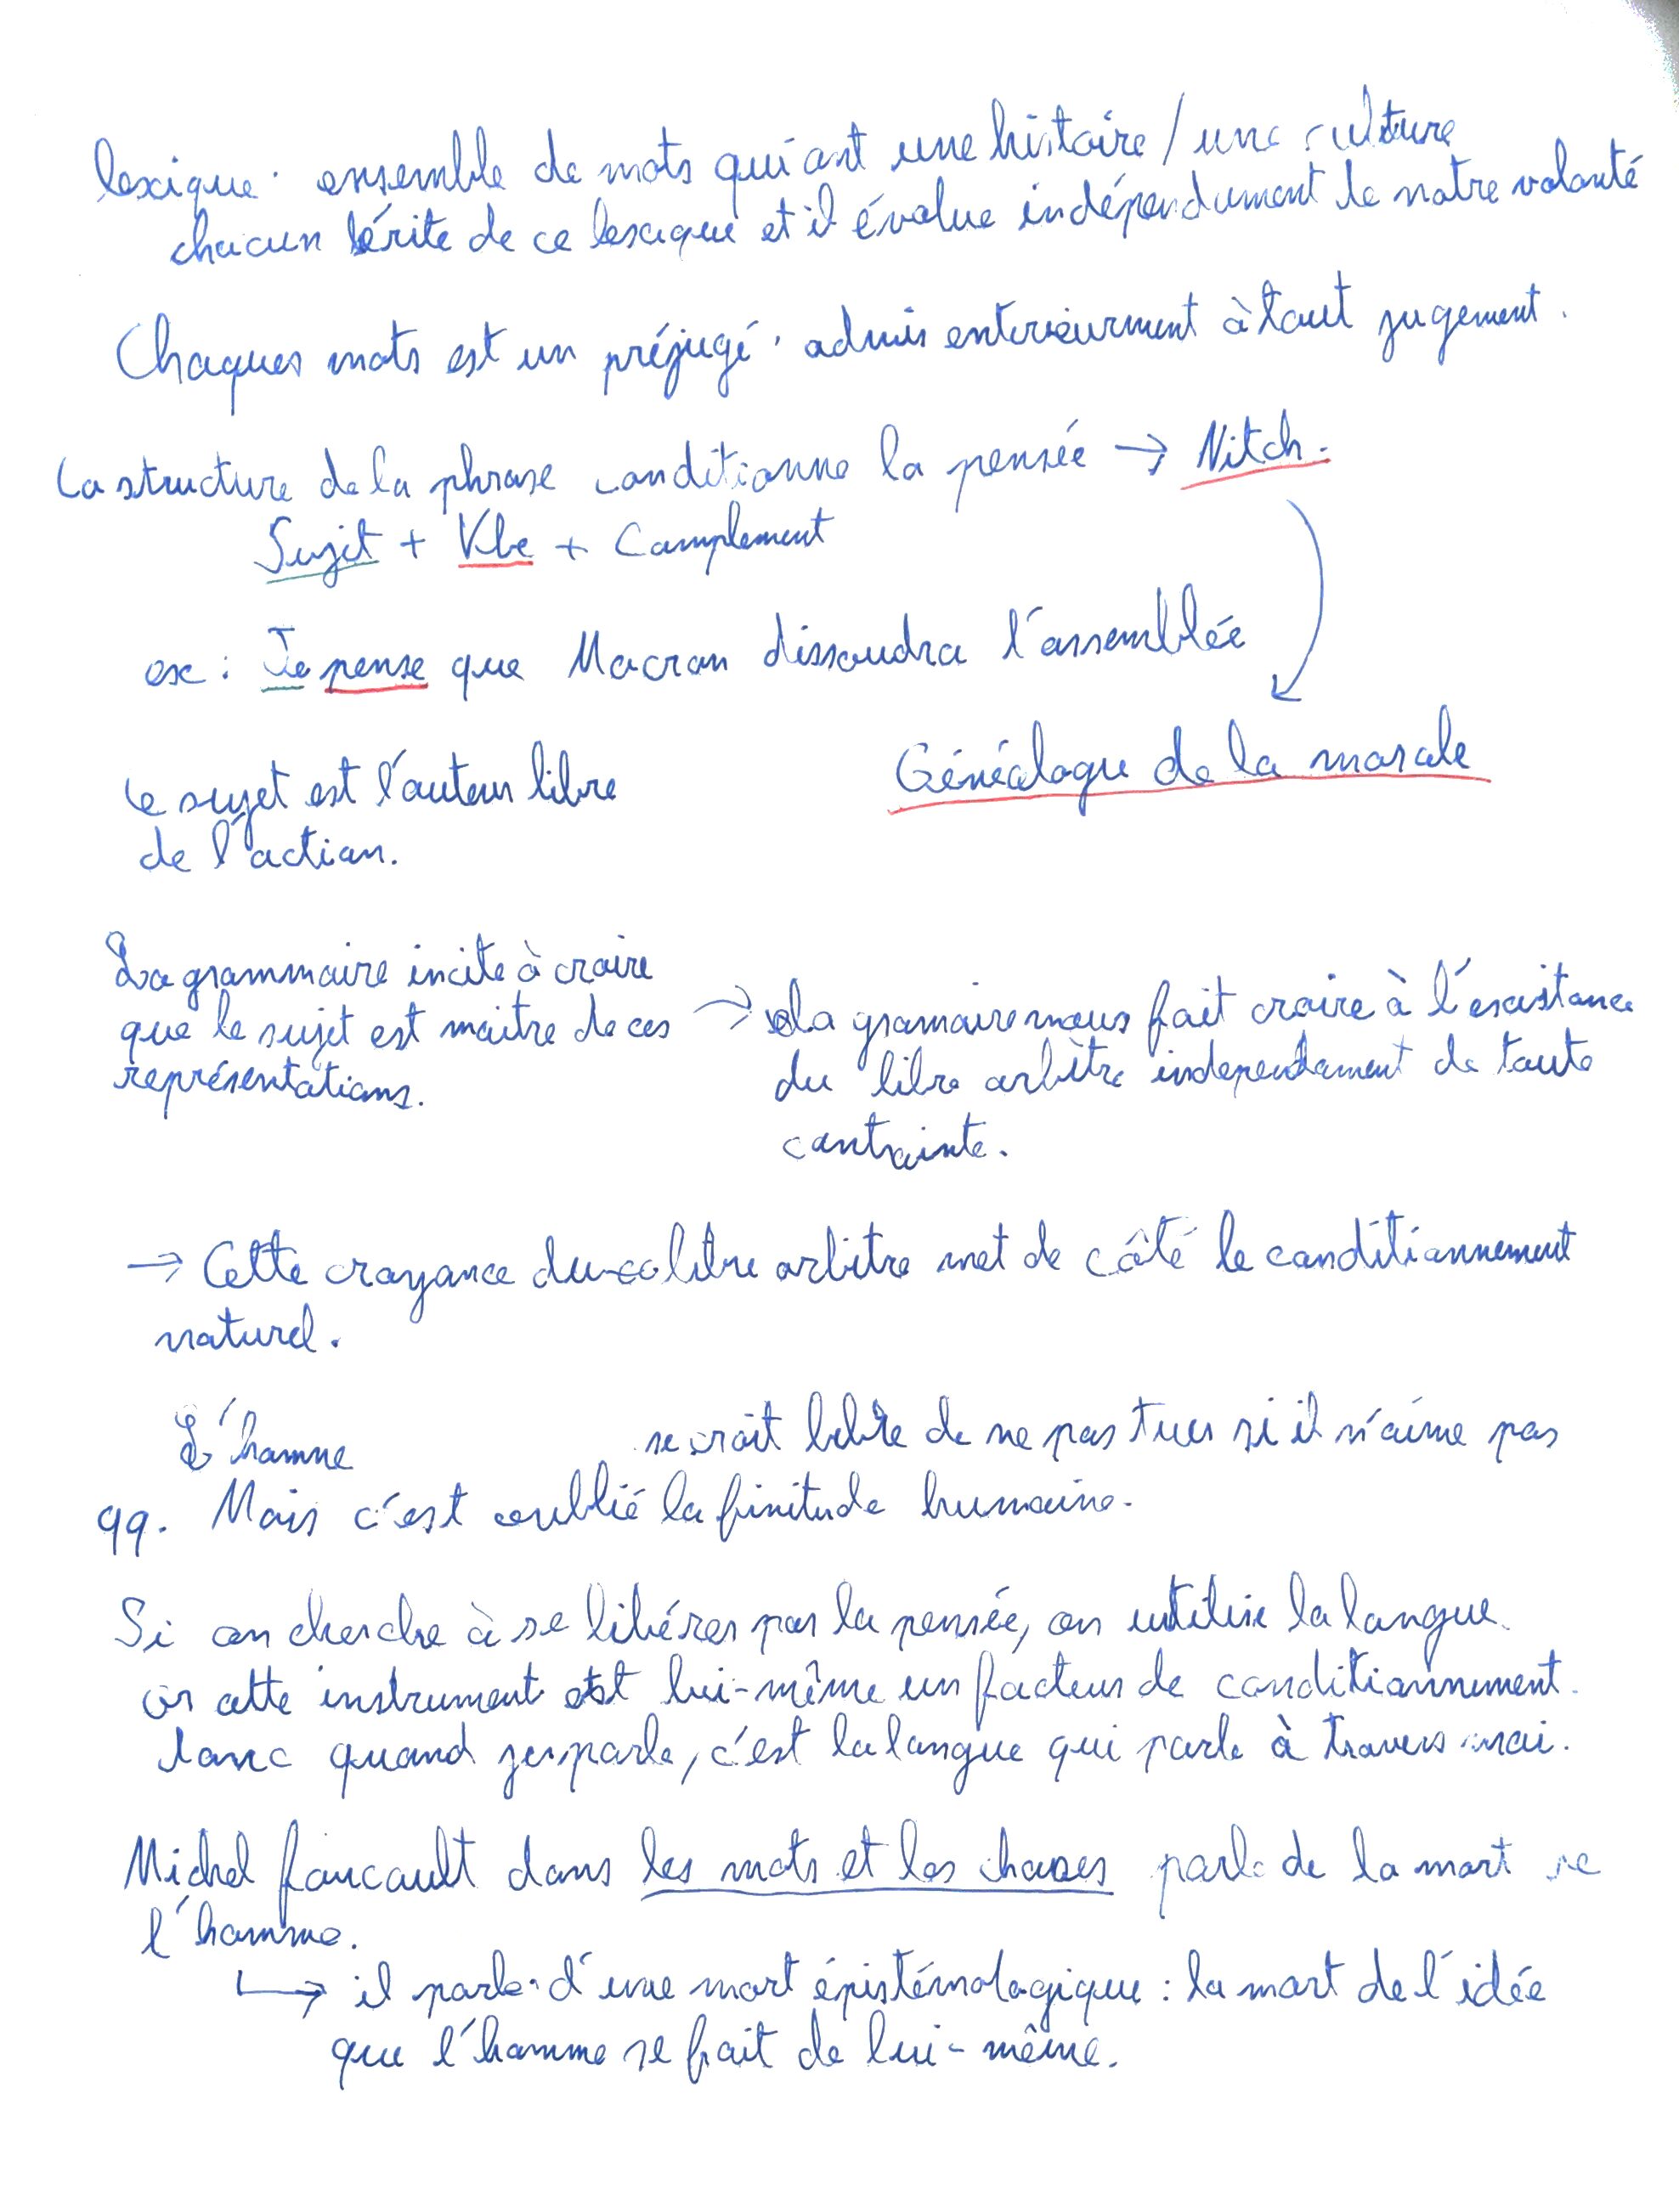 lexique : ensemble de mots qui ont une histoire / une culture
chacun hérite de ce lexique et il évolue indépendument de notre volonté
Chaques mots est un préjugé : admis enterieurment à tout jugement.
La structure de la phrase conditionne la pensée → Nitch.
Sujet + Vbe + Complement
ex : Je pense que Macron dissoudra l'assemblée
Généalogue de la morale
Le sujet est l'auteur libre
de l'action.
La grammaire incite à croire
que le sujet est maitre de ces
représentations.
→ La gramaire nous fait croire à l'existance
du libre arbitre independament de toute
contrainte.
→ Cette croyance du libre arbitre met de côté le conditionnement
naturel.
L'homme se croit libre de ne pas tuer si il n'aime pas
qq. Mais c'est oublié la finitude humaine.
Si on cherche à se libérer par la pensée, on utilise la langue.
or cette instrument est lui-même un facteur de conditionnement.
donc quand je parle, c'est la langue qui parle à travers moi.
Michel foucault dans les mots et les choses parle de la mort de
l'homme.
↳ il parle d'une mort épistémologique : la mort de l'idée
que l'homme se fait de lui-même.